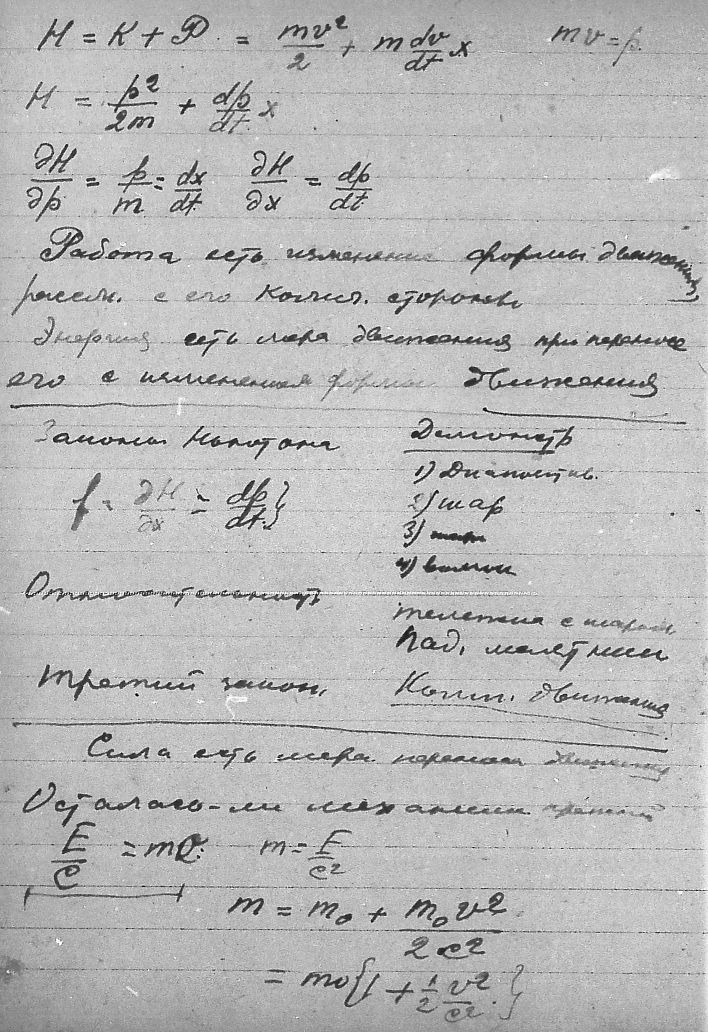 H = K + P = mv²/2 + m dv/dt x    mv = p
H = p²/2m + dp/dt x
∂H/∂p = p/m = dx/dt    ∂H/∂x = dp/dt
Работа есть изменение формы движения,
рассм. с его колич. стороны
Энергия есть мера движения при переносе
его с изменением формы движения
Законы Ньютона
Демонстр
1) Диапозитив.
2) шар
3)
4)
f = ∂H/∂x = dp/dt}
Относительность
тележка с шаром
Пад. маятники
Третий закон.
Колич. движения
Сила есть мера переноса движения
Осталась-ли механика прежней
E/c = mc    m = E/c²
m = m₀ + m₀v²/2c²
= m₀{1 + 1/2 v²/c²}